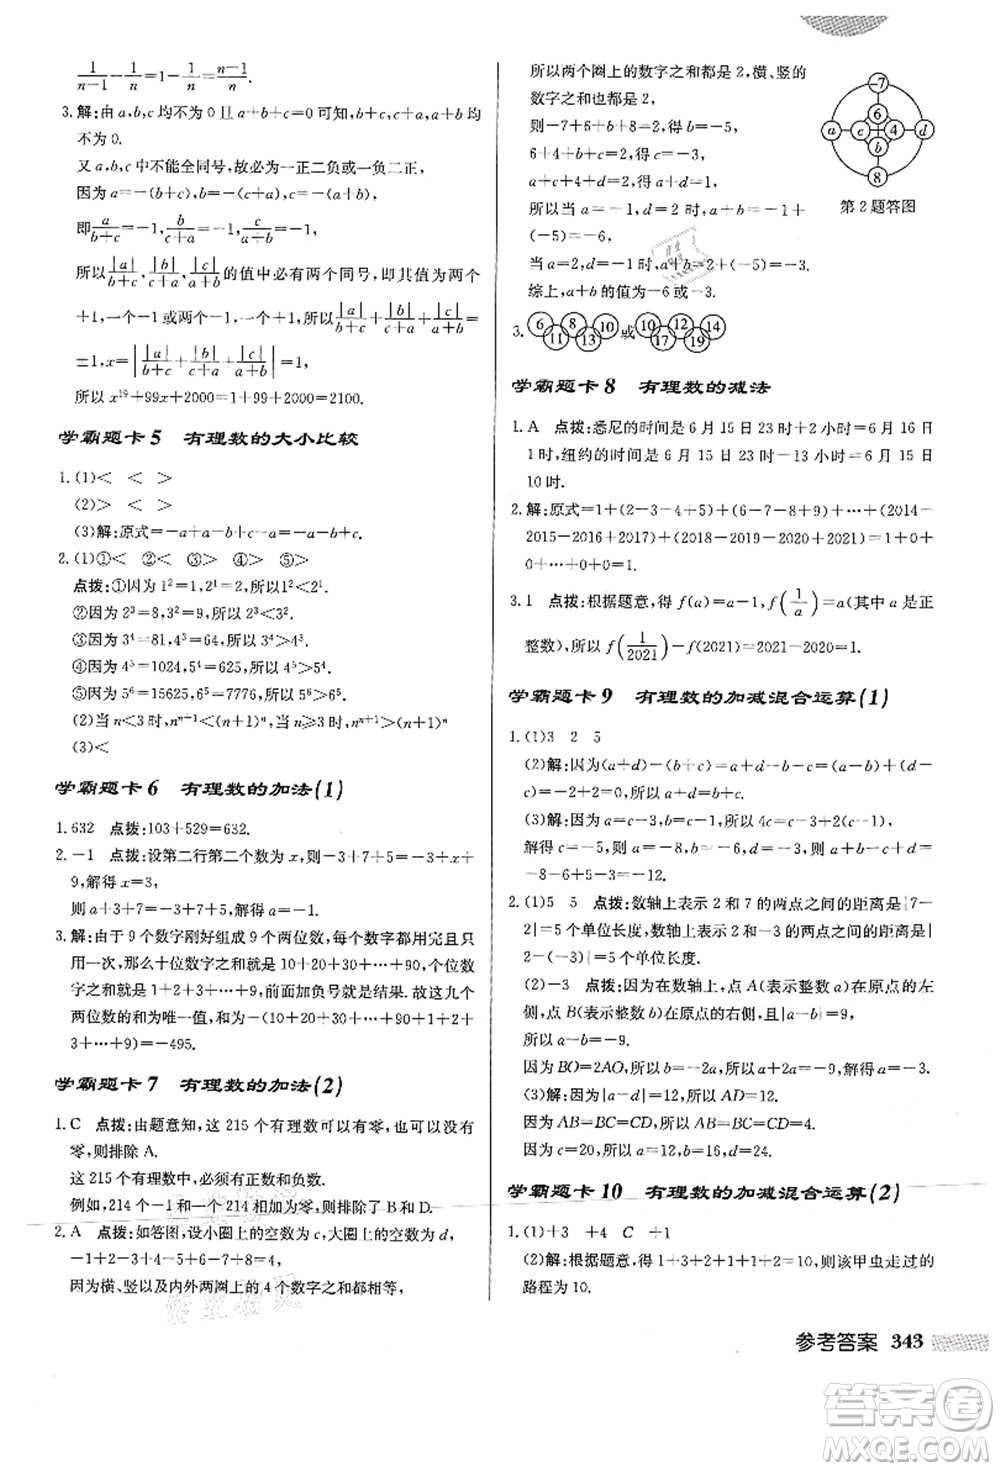 1/(n-1) - 1/n = 1 - 1/n = (n-1)/n.
3.解:由 a,b,c 均不为 0 且 a+b+c=0 可知,a+b,b+c,c+a 均
不为 0.
又 a,b,c 中不能全同号,故必为一正二负或一负二正,
因为 a=-(b+c),b=-(c+a),c=-(a+b),
即 a/(b+c)=-1,b/(c+a)=-1,c/(a+b)=-1,
所以 |a|/(b+c),|b|/(c+a),|c|/(a+b)的值中必有两个同号,即其值为两个
+1,一个-1 或两个-1,一个+1,所以 |a|/(b+c)+|b|/(c+a)+|c|/(a+b)=
±1,x=| |a|/(b+c)+|b|/(c+a)+|c|/(a+b) |=1,
所以 x¹⁹+99x+2000=1+99+2000=2100.
学霸题卡 5 有理数的大小比较
1.(1)< < >
(2)> < >
(3)解:原式=-a+a-b+c+b-c=0.
2.(1)①< ②< ③> ④> ⑤>
点拨:①因为 1²=1,2¹=2,所以 1²<2¹.
②因为 2³=8,3²=9,所以 2³<3².
③因为 3⁴=81,4³=64,所以 3⁴>4³.
④因为 4⁵=1024,5⁴=625,所以 4⁵>5⁴.
⑤因为 5⁶=15625,6⁵=7776,所以 5⁶>6⁵.
(2)当 n<3 时,nⁿ⁺¹<(n+1)ⁿ,当 n≥3 时,nⁿ⁺¹>(n+1)ⁿ
(3)<
学霸题卡 6 有理数的加法(1)
1.632 点拨:103+529=632.
2.-1 点拨:设第二行第二个数为 x,则-3+7+5=-3+x+
9,解得 x=3,
则 a+3+7=-3+7+5,解得 a=-1.
3.解:由于 9 个数字刚好组成 9 个两位数,每个数字都只能使
用一次,那么十位数字之和就是 10+20+30+…+90,个位数
字之和是 1+2+3+…+9,前面加负号就是结果.故这九个
两位数的和为唯一值,和为-(10+20+30+…+90+1+2+
3+…+9)=-495.
学霸题卡 7 有理数的加法(2)
1.C 点拨:由题意知,这 215 个有理数可以有零,也可以没有
零,则排除 A.
这 215 个有理数中,必须有正数和负数.
例如,214 个-1 和一个 214 相加和为零,则可排除 B 和 D.
2.A 点拨:如答图,设小圈上的空数为 c,大圈上的空数为 d.
-1+2-3+4-5+6-7+8=4,
因为横、竖以及内外两圈上的 4 个数字之和都相等,
所以两个圈上的数字之和都是 2,横、竖的
数字之和也是 2,
则-7+6+b+8=2,得 b=-5,
6+4+b+c=2,得 c=-3,
a+c+4+d=2,得 a+d=1.
所以当 a=-1 时,d=2,则 a+b=-1+
(-5)=-6,
当 a=2,d=-1 时,a+b=2+(-5)=-3.
综上,a+b 的值为-6 或-3.
-7
6
a c 4 d
b
8
第 2 题答图
3. 6 11 8 13 10 或 10 17 12 19 14
学霸题卡 8 有理数的减法
1.A 点拨:悉尼的时间是 6 月 15 日 23 时+2 小时=6 月 16 日
1 时,纽约的时间是 6 月 15 日 23 时-13 小时=6 月 15 日
10 时.
2.解:原式=1+(2-3-4+5)+(6-7-8+9)+…+(2014-
2015-2016+2017)+(2018-2019-2020+2021)=1+0+
0+…+0=1.
3.1 点拨:根据题意,得 f(a)=a-1,f(1/a)=a(其中 a 是正
整数),所以 f(1/2021)-f(2021)=2021-2020=1.
学霸题卡 9 有理数的加减混合运算(1)
1.(1)3 2 5
(2)解:因为(a+d)-(b+c)=(a-b)+(d-c)=(-c)+
c=0,所以 a+d=b+c.
(3)解:因为 a=c-3,b=c-1,所以 4c=c-3+c-1+c+c-1,
解得 c=-5,所以 a=-8,b=-6,d=c-1=-6,所以 a-b+c+d=
-8+6+5-6=-12.
2.(1)5 5 点拨:数轴上表示 2 和 7 的两点之间的距离是|7-
2|=5 个单位长度,数轴上表示 2 和-3 的两点之间的距离为|
2-(-3)|=5 个单位长度.
(2)-3 点拨:因为在数轴上,点 A(表示整数 a)在原点的左
侧,点 B(表示整数 b)在原点的右侧,且|a-b|=9,
所以 b-a=9.
因为 BO=2AO,所以 b=-2a,所以-2a-a=9,解得 a=-3.
(3)解:因为|a-d|=12,所以 AD=12.
因为 AB=BC=CD,所以 AB=BC=CD=4.
因为 a=12,所以 b=16,d=24.
学霸题卡 10 有理数的加减混合运算(2)
1.(1)+3 +4 C +1
(2)解:根据题意,得 1+3+2+1+1+2=10,则该甲虫走过的
路程为 10.
参考答案 343
答案圈
MXQE.COM